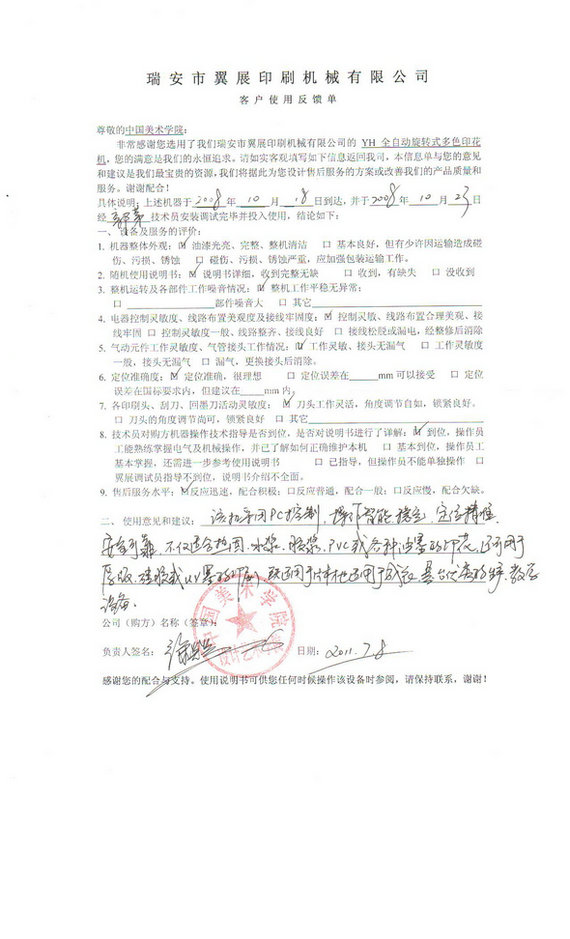 瑞安市翼展印刷机械有限公司
客户使用反馈单
尊敬的中国美术学院：
非常感谢您选用了我们瑞安市翼展印刷机械有限公司的 YH 全自动旋转式多色印花
机，您的满意是我们的永恒追求。请如实客观填写如下信息返回我司，本信息单与您的意见
和建议是我们最宝贵的资源，我们将据此为您设计售后服务的方案或改善我们的产品质量和
服务。谢谢配合！
具体说明：上述机器于 2008 年 10 月 18 日到达，并于 2008 年 10 月 23 日
经 技术员安装调试完毕并投入使用，结论如下：
一、设备及服务的评价：
1. 机器整体外观：☑ 油漆光亮、完整、整机清洁 □ 基本良好，但有少许因运输造成碰
伤、污损、锈蚀 □ 碰伤、污损、锈蚀严重，应加强包装运输工作。
2. 随机使用说明书：☑ 说明书详细、收到完整无缺 □ 收到，有缺失 □ 没收到
3. 整机运转及各部件工作噪音情况：☑ 整机工作平稳无异常；
□ 部件噪音大 □ 其它
4. 电器控制灵敏度、线路布置美观度及接线牢固度：☑ 控制灵敏、线路布置合理美观、接
线牢固 □ 控制灵敏度一般、线路整齐、接线良好 □ 接线松脱或漏电，经整修后消除
5. 气动元件工作灵敏度、气管接头工作情况：☑ 工作灵敏、接头无漏气 □ 工作灵敏度
一般，接头无漏气 □ 漏气，更换接头后消除。
6. 定位准确度：☑ 定位准确，很理想 □ 定位误差在 mm 可以接受 □ 定位
误差在国标要求内，但建议在 mm 内。
7. 各印刷头、刮刀、回墨刀活动灵敏度：☑ 刀头工作灵活，角度调节自如，锁紧良好。
□ 刀头的角度调节尚可，锁紧良好 □ 其它
8. 技术员对购方机器操作技术指导是否到位，是否对说明书进行了详解：☑ 到位，操作员
工能熟练掌握电气及机械操作，并已了解如何正确维护本机 □ 基本到位，操作员工
基本掌握，还需进一步参考使用说明书 □ 已指导，但操作员不能单独操作 □
翼展调试员指导不到位，说明书介绍不全面。
9. 售后服务水平：☑反应迅速，配合积极；□反应普通，配合一般；□反应慢，配合欠缺。
二、使用意见和建议：该机采用PC控制，操作智能稳定、定位精准
安全可靠，不仅适合热固、水浆、胶浆、PVC或各种油墨的印花，还可用于
厚版
设备。
公司（购方）名称（签章）：
中国美术学院
设计艺术
负责人签名： 日期：2011.7.8
感谢您的配合与支持。使用说明书可供您任何时候操作该设备时参阅，请保持联系，谢谢！